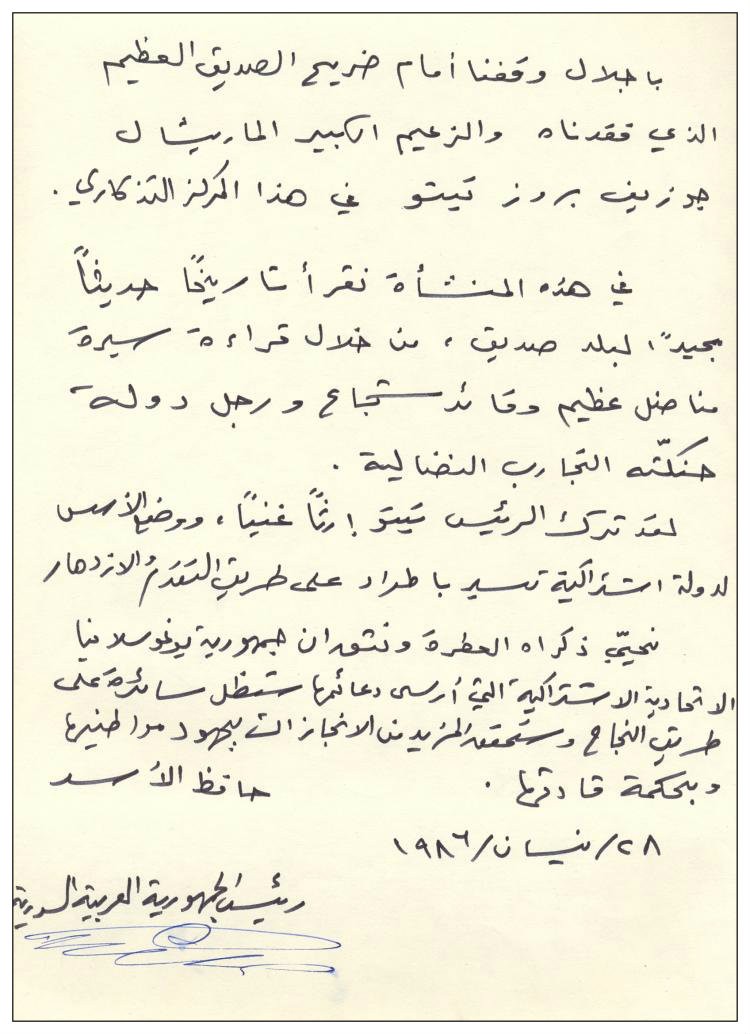 باجلال وقفنا أمام ضريح الصديق العظيم
الذي فقدناه والزعيم الكبير الماريشال
جوزيف بروز تيتو في هذا المركز التذكاري .
في هذه المنشأة نقرأ تاريخًا حديثًا
مجيدًا لبلد صديق ، من خلال قراءة سيرة
مناضل عظيم وقائد شجاع ورجل دولة
حنكّته التجارب النضالية .
لقد ترك الرئيس تيتو إرثًا غنيًا ، ووضع الأسس
لدولة اشتراكية تسير باطراد على طريق التقدم والازدهار
نحيّي ذكراه العطرة ونثق ان جمهورية يوغوسلافيا
الاتحادية الاشتراكية التي أرسى دعائمها ستظل سائرة على
طريق النجاح وستحقق المزيد من الانجازات بجهود مواطنيها
وبحكمة قادتها .
حافظ الأسد
٢٨/نيسان/١٩٨٦
رئيس الجمهورية العربية السورية